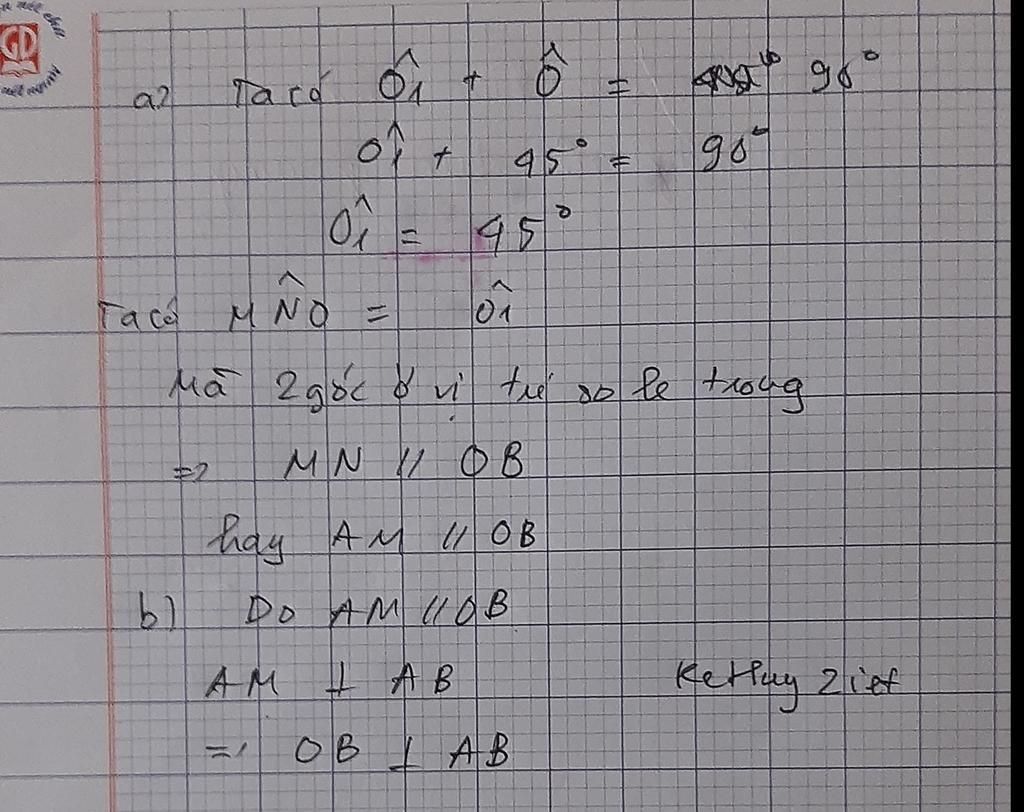 GD
a) Ta có Ô1 + Ô = 90°
Ô1 + 45° = 90°
Ô1 = 45°
Ta có MN̂O = Ô1
Mà 2 góc ở vị trí so le trong
=> MN // OB
hay AM // OB
b) Do AM // OB
AM ⊥ AB
=> OB ⊥ AB